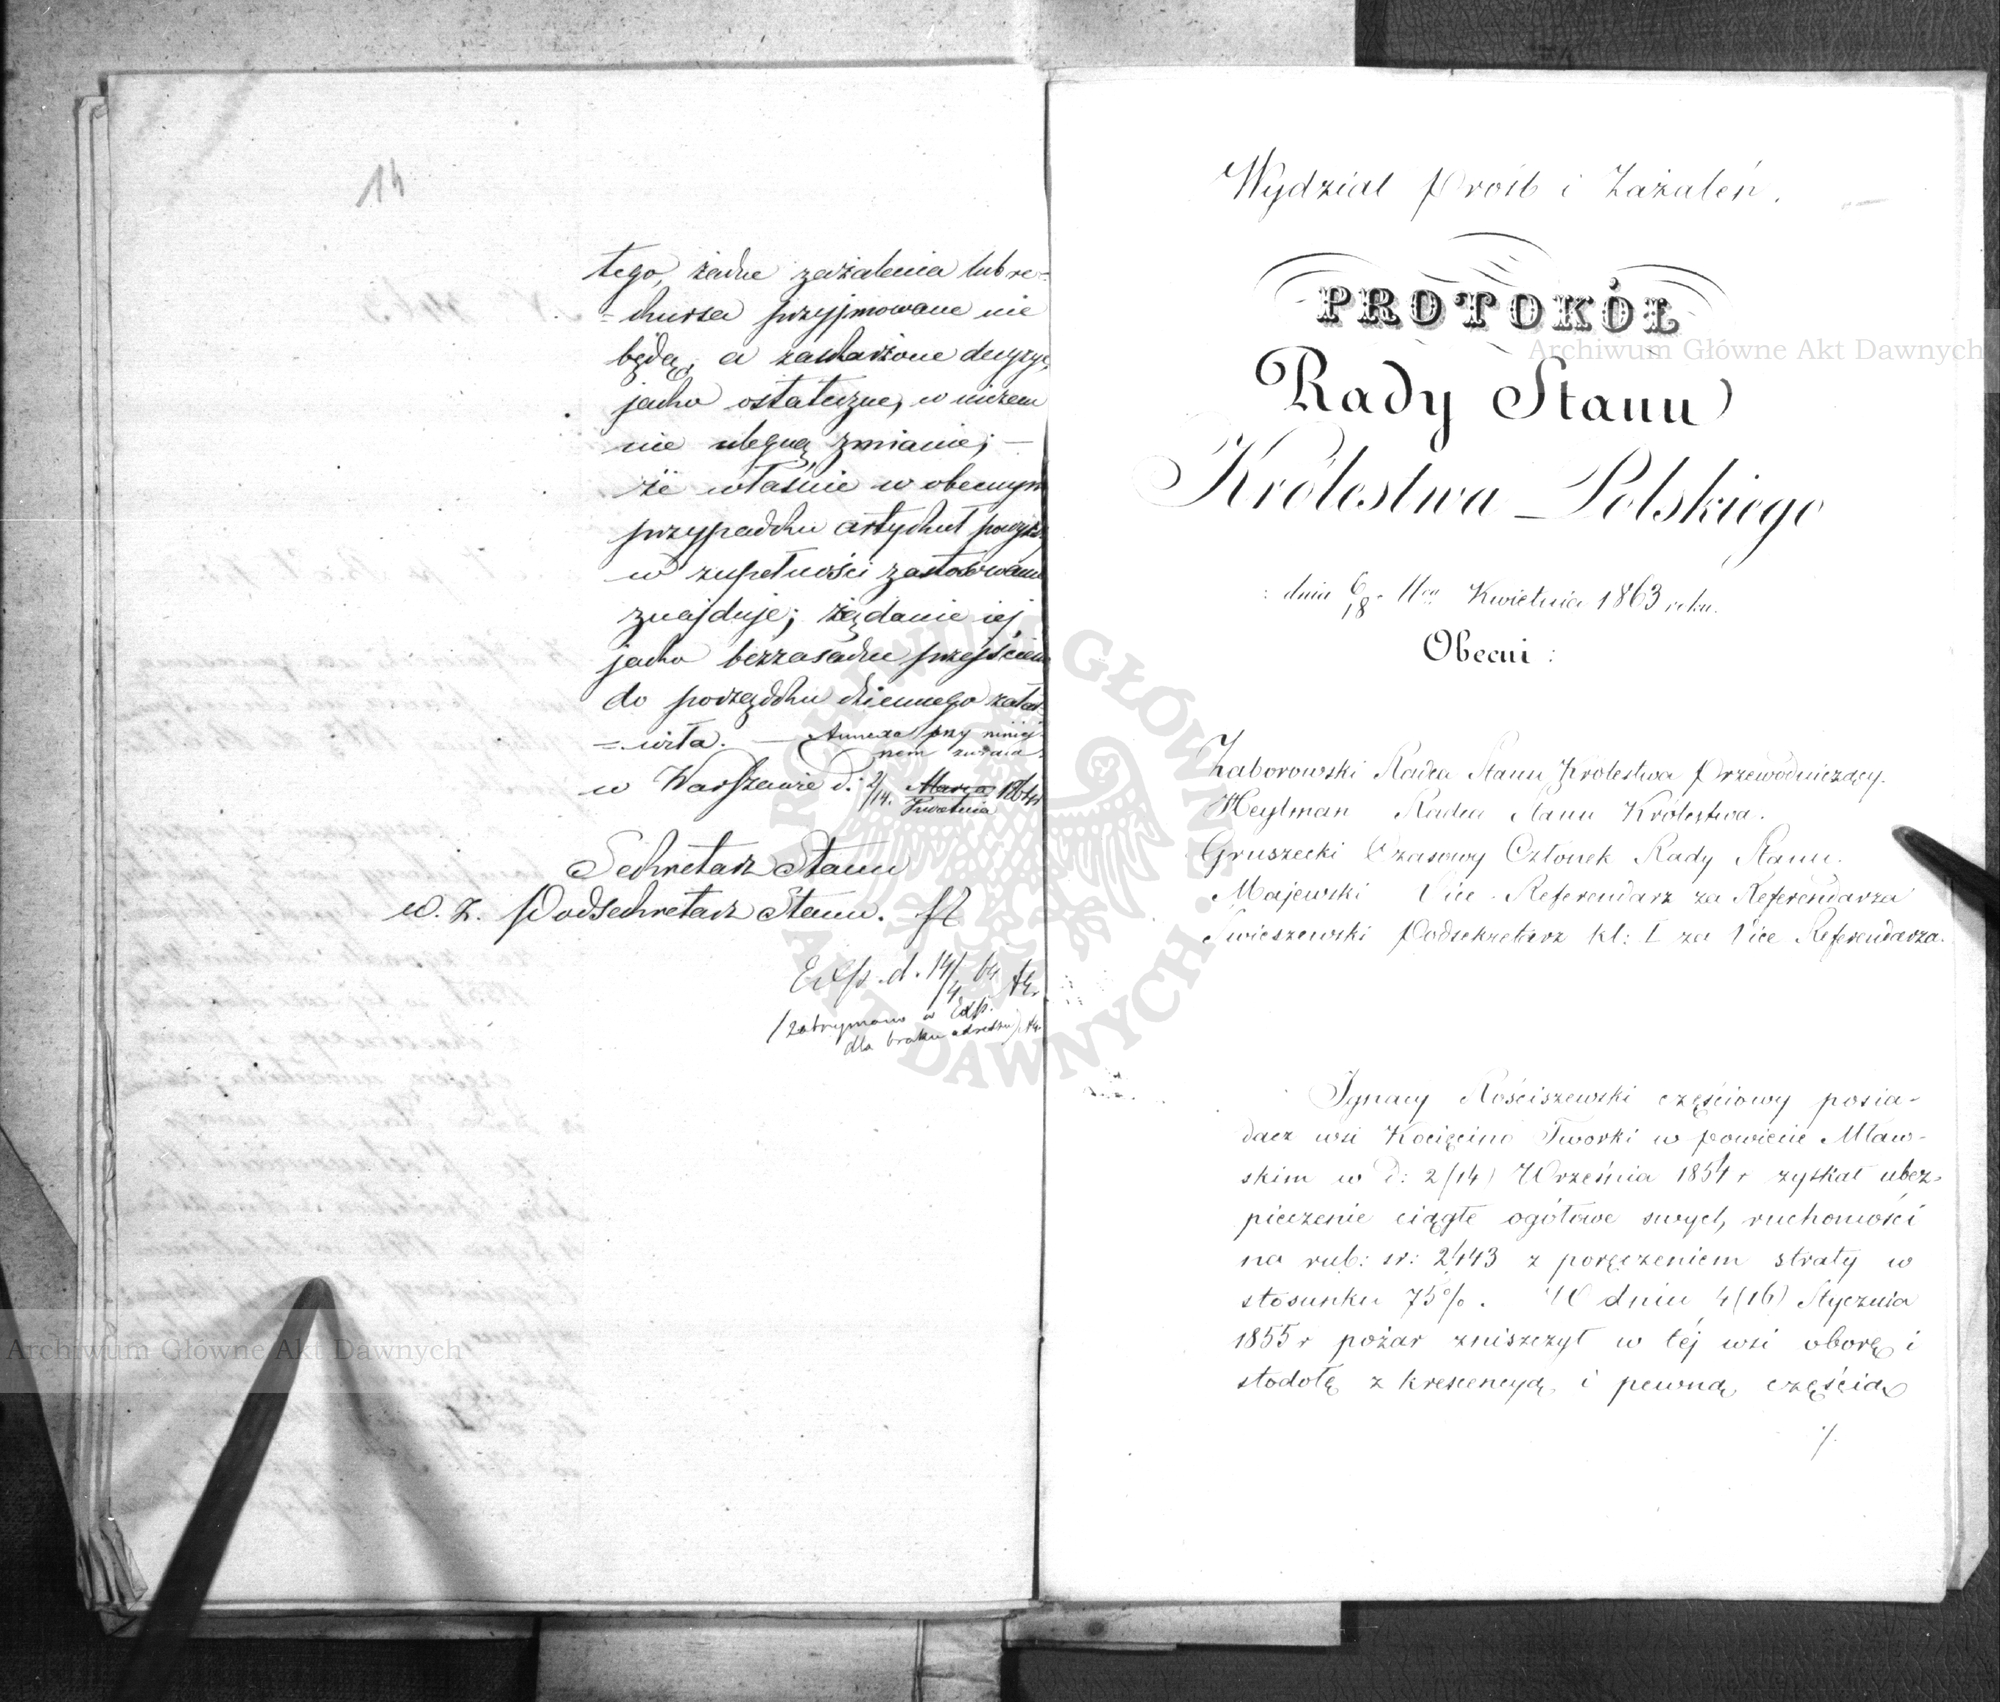 14
tego, żadne zażalenia lub re=
=kursa przyjmowane nie
będą, a zaskarżone decyzye,
jako ostateczne, w niczem
nie ulegną zmianie; —
że właśnie w obecnym
przypadku artykuł powyższy
w zupełności zastosowanie
znajduje; żądanie jej
jako bezzasadne przejściem
do porządku dziennego załat=
=wiła. — Annexa przy niniej=
nem zwraca
w Warszawie d. 2/14. Marca Kwietnia 1864
Sekretarz Stanu
w. z. Podsekretarz Stanu.
Exp. d. 14/4 64
/zatrzymano w Exp.
dla braku adressu/
Wydział Próśb i Zażaleń.
PROTOKÓŁ
Rady Stanu
Królestwa Polskiego
dnia 6/18 Kwietnia 1863 roku.
Obecni:
Zaborowski Radca Stanu Królestwa Przewodniczący.
Heylman Radca Stanu Królestwa.
Gruszecki Czasowy Członek Rady Stanu.
Majewski Vice-Referendarz za Referendarza
Świeszewski Podsekretarz kl: I za Vice Referendarza.
Ignacy Rościszewski częściowy posia-
dacz wsi Kocięcino Tworki w powiecie Mław-
skim w d: 2 (14) Września 1854 r zyskał ubez-
pieczenie ciągłe ogółowe swych ruchomości
na rub: sr: 2443 z poręczeniem straty w
stosunku 75%. W dniu 4 (16) Stycznia
1855 r pożar zniszczył w tej wsi oborę i
stodołę z krescencyą, i pewną częścią
/.
Archiwum Główne Akt Dawnych
Archiwum Główne Akt Dawnych
ARCHIWUM GŁÓWNE AKT DAWNYCH